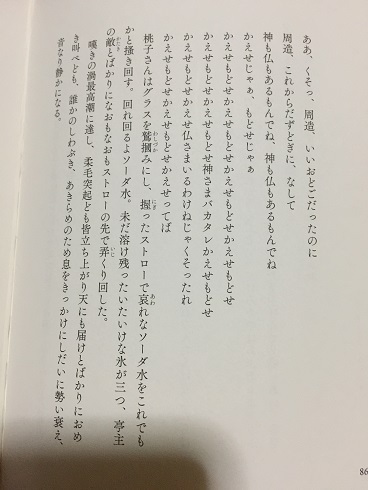 ああ、くそっ、周造、いいおどごだったのに
周造、これからだずどぎに、なして
神も仏もあるもんでね、神も仏もあるもんでね
かえせじゃぁ、もどせじゃぁ
かえせもどせかえせもどせかえせもどせかえせもどせ
かえせもどせかえせもどせ神さまバカタレかえせもどせ
かえせもどせかえせ仏さまいるわけねじゃくそったれ
かえせもどせかえせもどせかえせってば
桃子さんはグラスを鷲掴みにし、握ったストローで哀れなソーダ水をこれでも
かと掻き回す。回れ回るよソーダ水。未だ溶け残ったいたいけな氷が三つ、亭主
の敵とばかりになおもなおもストローの先で弄くり回した。
嘆きの渦最高潮に達し、柔毛突起ども皆立ち上がり天にも届けとばかりにおめ
き叫べども、誰かのしわぶき、あきらめのため息をきっかけにしだいに勢い衰え、
音なり静かになる。
86